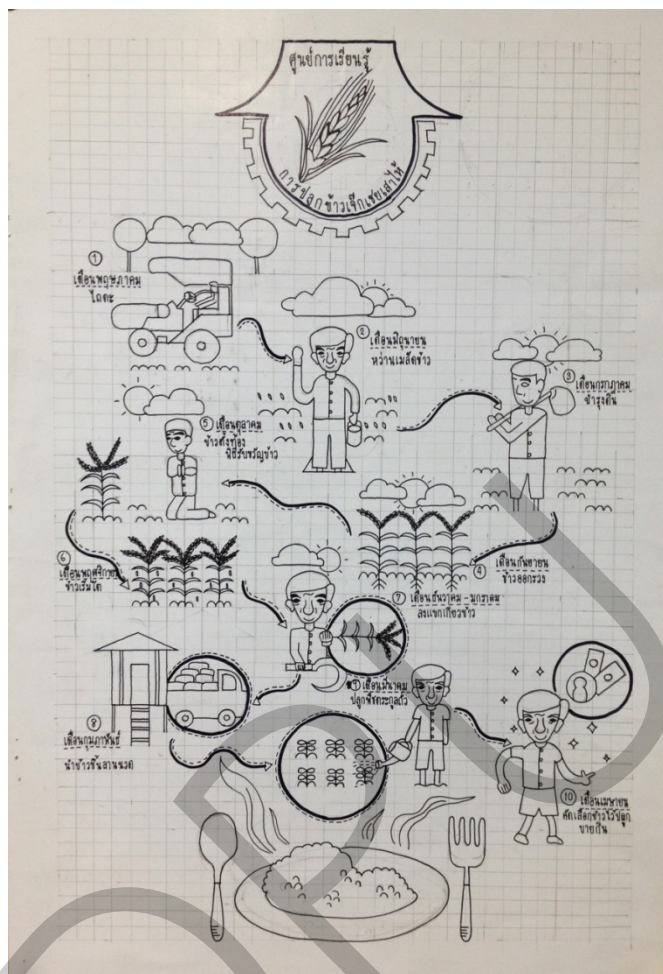 ศูนย์การเรียนรู้
การปลูกข้าวเจ๊กเชยเสาไห้
①
เดือนพฤษภาคม
ไถดะ
② เดือนมิถุนายน
หว่านเมล็ดข้าว
③ เดือนกรกฎาคม
บำรุงดิน
④ เดือนกันยายน
ข้าวออกรวง
⑤ เดือนตุลาคม
ข้าวตั้งท้อง
พิธีรับขวัญข้าว
⑥
เดือนพฤศจิกายน
ข้าวเริ่มโต
⑦ เดือนธันวาคม - มกราคม
ลงแขกเกี่ยวข้าว
⑧
เดือนกุมภาพันธ์
นำข้าวขึ้นลานนวด
เดือนมีนาคม
ปลูกพืชตระกูลถั่ว
⑩ เดือนเมษายน
คัดเลือกข้าวไว้ปลูก
ขายกิน